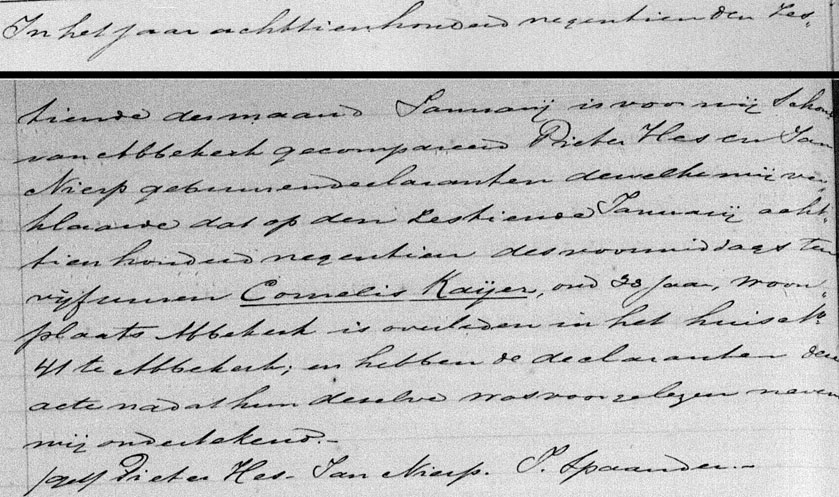 In het jaar achttienhonderd negentien den Zes-
tiende der maand Januarij is voor mij Schout
van Abbekerk gecompareerd Pieter Hes en Jan
Nierp gebuuren declaranten dewelke mij ver-
klaarde dat op den Zestiende Januarij acht-
tien honderd negentien des voormiddags ten
vijf uuren Cornelis Kaijer, oud 38 jaar, woon-
plaats Abbekerk is overleden in het huis N°
41 te Abbekerk; en hebben de declaranten deze
acte nadat hun deselve was voorgelezen neven
mij ondertekend.-
/get/ Pieter Hes - Jan Nierp. J. Spaander.-